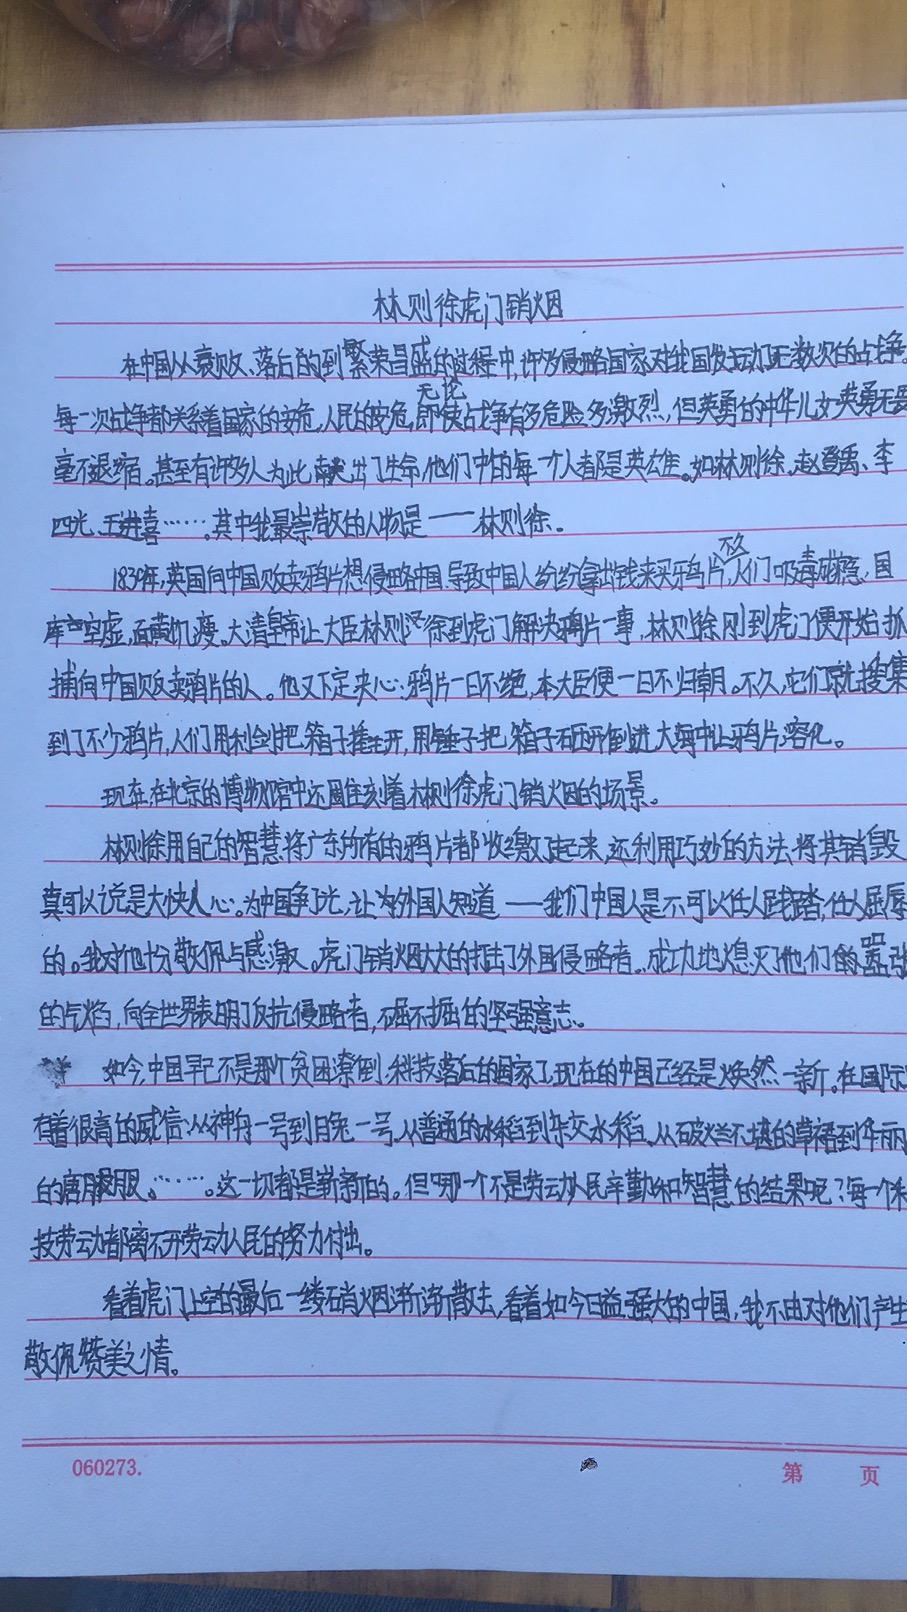 林则徐虎门销烟
在中国从衰败、落后的到繁荣昌盛的过程中,许多侵略国家对我国发动了无数次的战争。
无论
每一次战争都关系着国家的安危,人民的安危,即使战争有多危险,多激烈,但英勇的中华儿女英勇无畏
毫不退缩。甚至有许多人为此献出了生命,他们中的每一个人都是英雄。如林则徐、赵登禹、李
四光、王进喜……。其中我最崇敬的人物是——林则徐。
不久
1839年,英国向中国贩卖鸦片想侵略中国.导致中国人纷纷拿出钱来买鸦片,人们吸毒成瘾,国
库空虚,面黄肌瘦。大清皇帝让大臣林则徐到虎门解决鸦片一事,林则徐刚到虎门便开始抓
捕向中国贩卖鸦片的人。他又下定决心:鸦片一日不绝,本大臣便一日不归朝。不久,它们就搜集
到了不少鸦片,人们用利剑把箱子撬开,用锤子把箱子砸开倒进大海中让鸦片溶化。
现在,在北京的博物馆中还雕刻着林则徐虎门销烟的场景。
林则徐用自己的智慧将广东所有的鸦片都收缴起来,还利用巧妙的方法,将其销毁
真可以说是大快人心。为中国争了光,让外国人知道——我们中国人是不可以任人践踏,任人屈辱
的。我对他十分敬佩与感激。虎门销烟大大的打击了外国侵略者,成功地熄灭了他们的嚣张
的气焰,向全世界表明了反抗侵略者,不屈不挠的坚强意志。
如今,中国早已不是那个贫困潦倒,科技落后的国家了,现在的中国已经是焕然一新。在国际
有着很高的威信:从神舟一号到月兔一号,从普通的水稻到杂交水稻,从破烂不堪的草裙到华丽
的唐朝服、……。这一切都是崭新的。但哪一个不是劳动人民辛勤和智慧的结果呢?每一个科
技劳动都离不开劳动人民的努力付出。
看着虎门上空的最后一缕硝烟渐渐散去,看着如今日益强大的中国,我不由对他们产生
敬佩赞美之情。
060273.
第 页